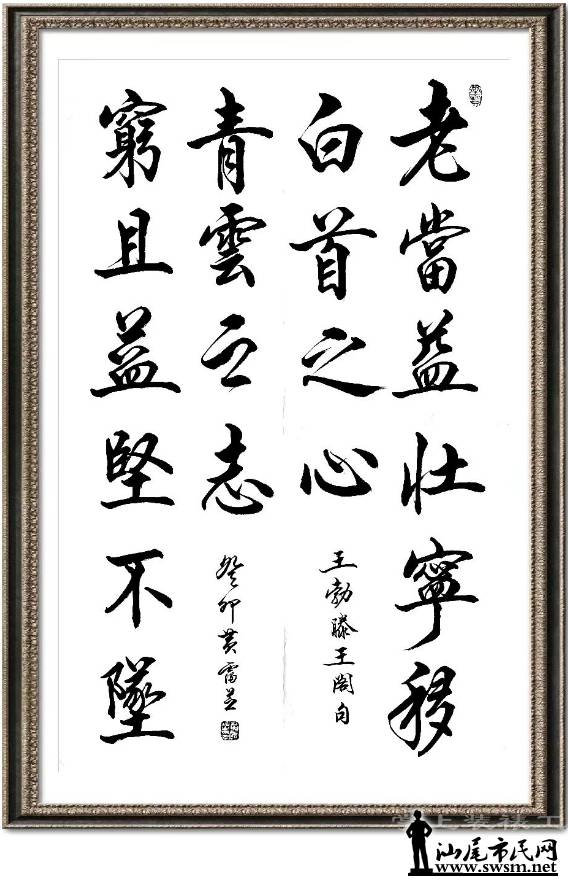 老當益壯寧移
白首之心
王勃滕王閣句
窮且益堅不墜
青雲之志
癸卯黄雷
上装裱工
汕尾市民网
www.swsm.net